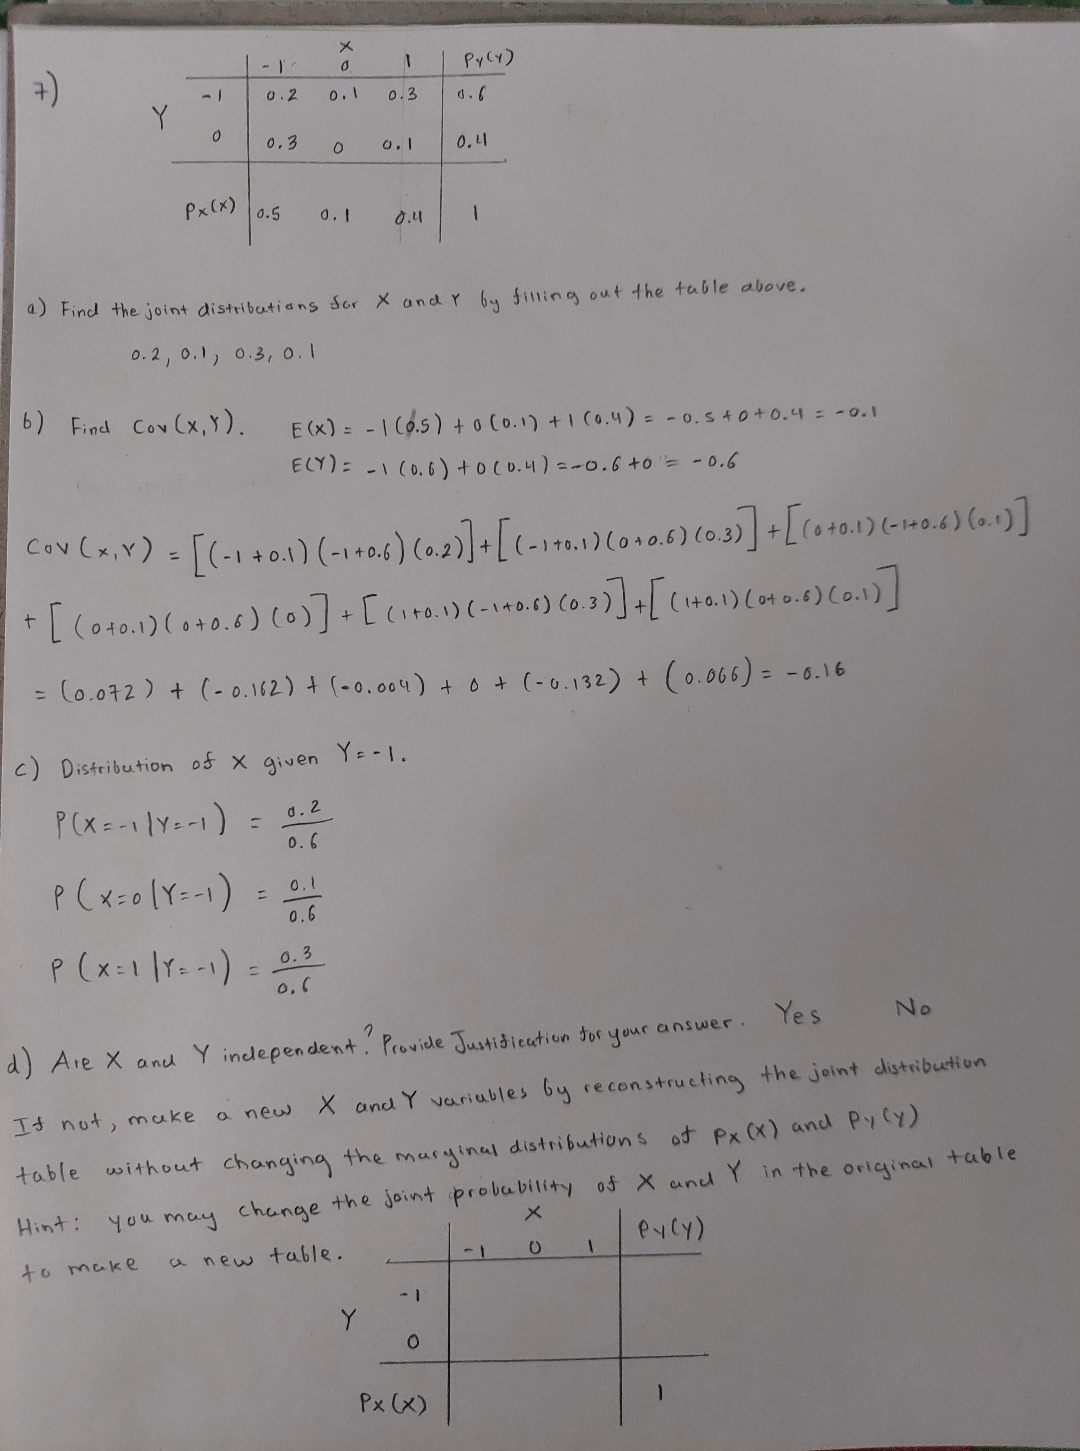 7)
X
-1 0 1 Py(Y)
Y
-1 0.2 0.1 0.3 0.6
0 0.3 0 0.1 0.4
Px(X) 0.5 0.1 0.4 1
a) Find the joint distributions for X and Y by filling out the table above.
0.2, 0.1, 0.3, 0.1
b) Find Cov(X,Y). E(X) = -1(0.5) + 0(0.1) + 1(0.4) = -0.5+0+0.4 = -0.1
E(Y) = -1(0.6) + 0(0.4) = -0.6+0 = -0.6
Cov(X,Y) = [(-1+0.1)(-1+0.6)(0.2)] + [(-1+0.1)(0+0.6)(0.3)] + [(0+0.1)(-1+0.6)(0.1)]
+ [(0+0.1)(0+0.6)(0)] + [(1+0.1)(-1+0.6)(0.3)] + [(1+0.1)(0+0.6)(0.1)]
= (0.072) + (-0.162) + (-0.004) + 0 + (-0.132) + (0.066) = -0.16
c) Distribution of X given Y=-1.
P(X=-1|Y=-1) = 0.2/0.6
P(X=0|Y=-1) = 0.1/0.6
P(X=1|Y=-1) = 0.3/0.6
d) Are X and Y independent? Provide Justification for your answer. Yes No
If not, make a new X and Y variables by reconstructing the joint distribution
table without changing the marginal distributions of Px(X) and Py(y)
Hint: you may change the joint probability of X and Y in the original table
to make a new table.
X
-1 0 1 Py(Y)
Y
-1
0
Px(X) 1